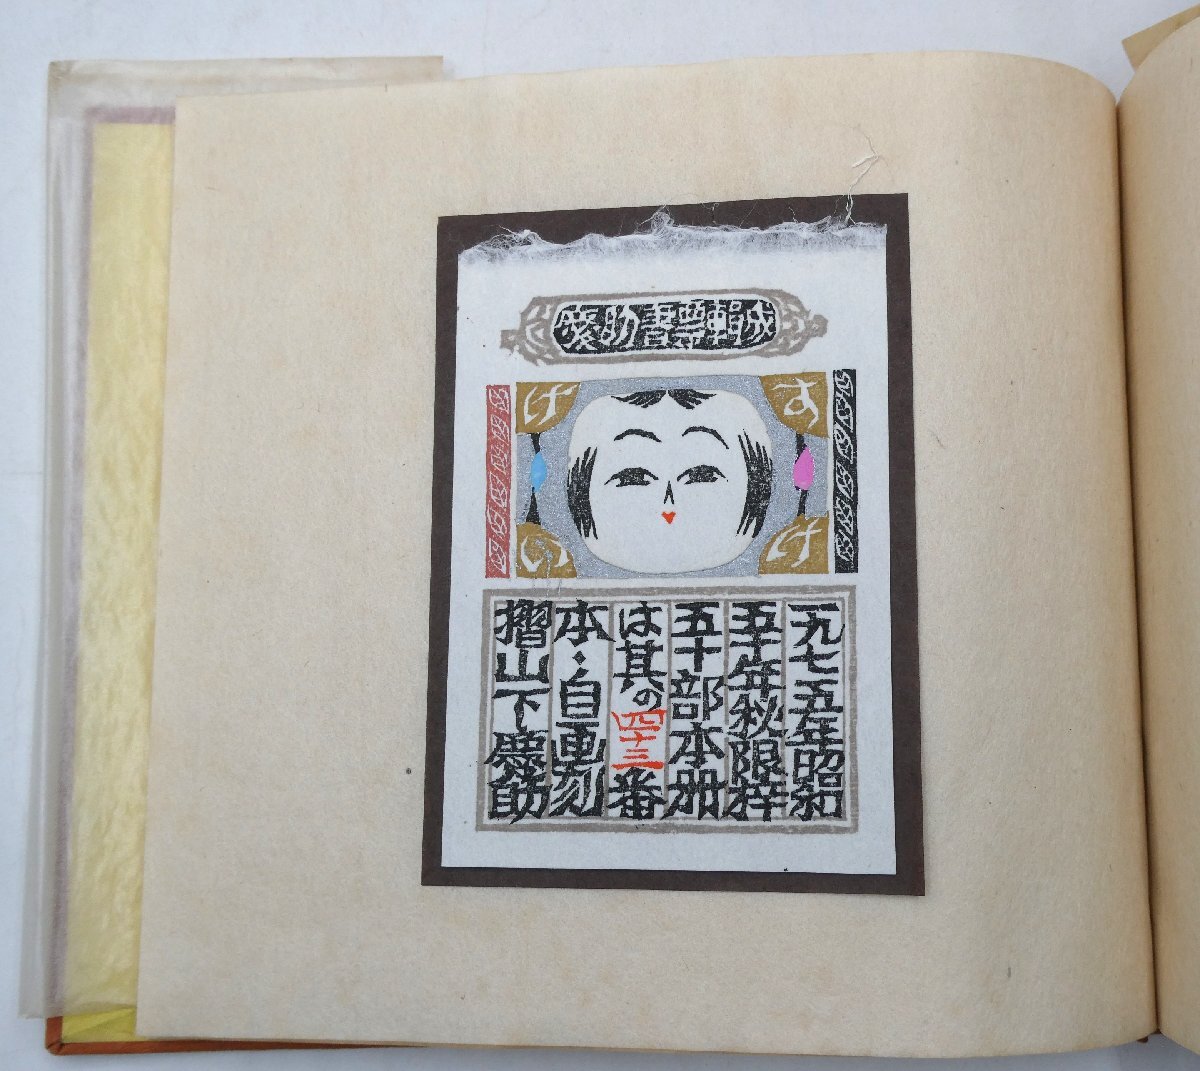 慶助書票輯成
けい
すけ
一九七五年昭和
五十年秋限梓
五十部本册
は其の四十三番
本：自画刻
摺山下慶助